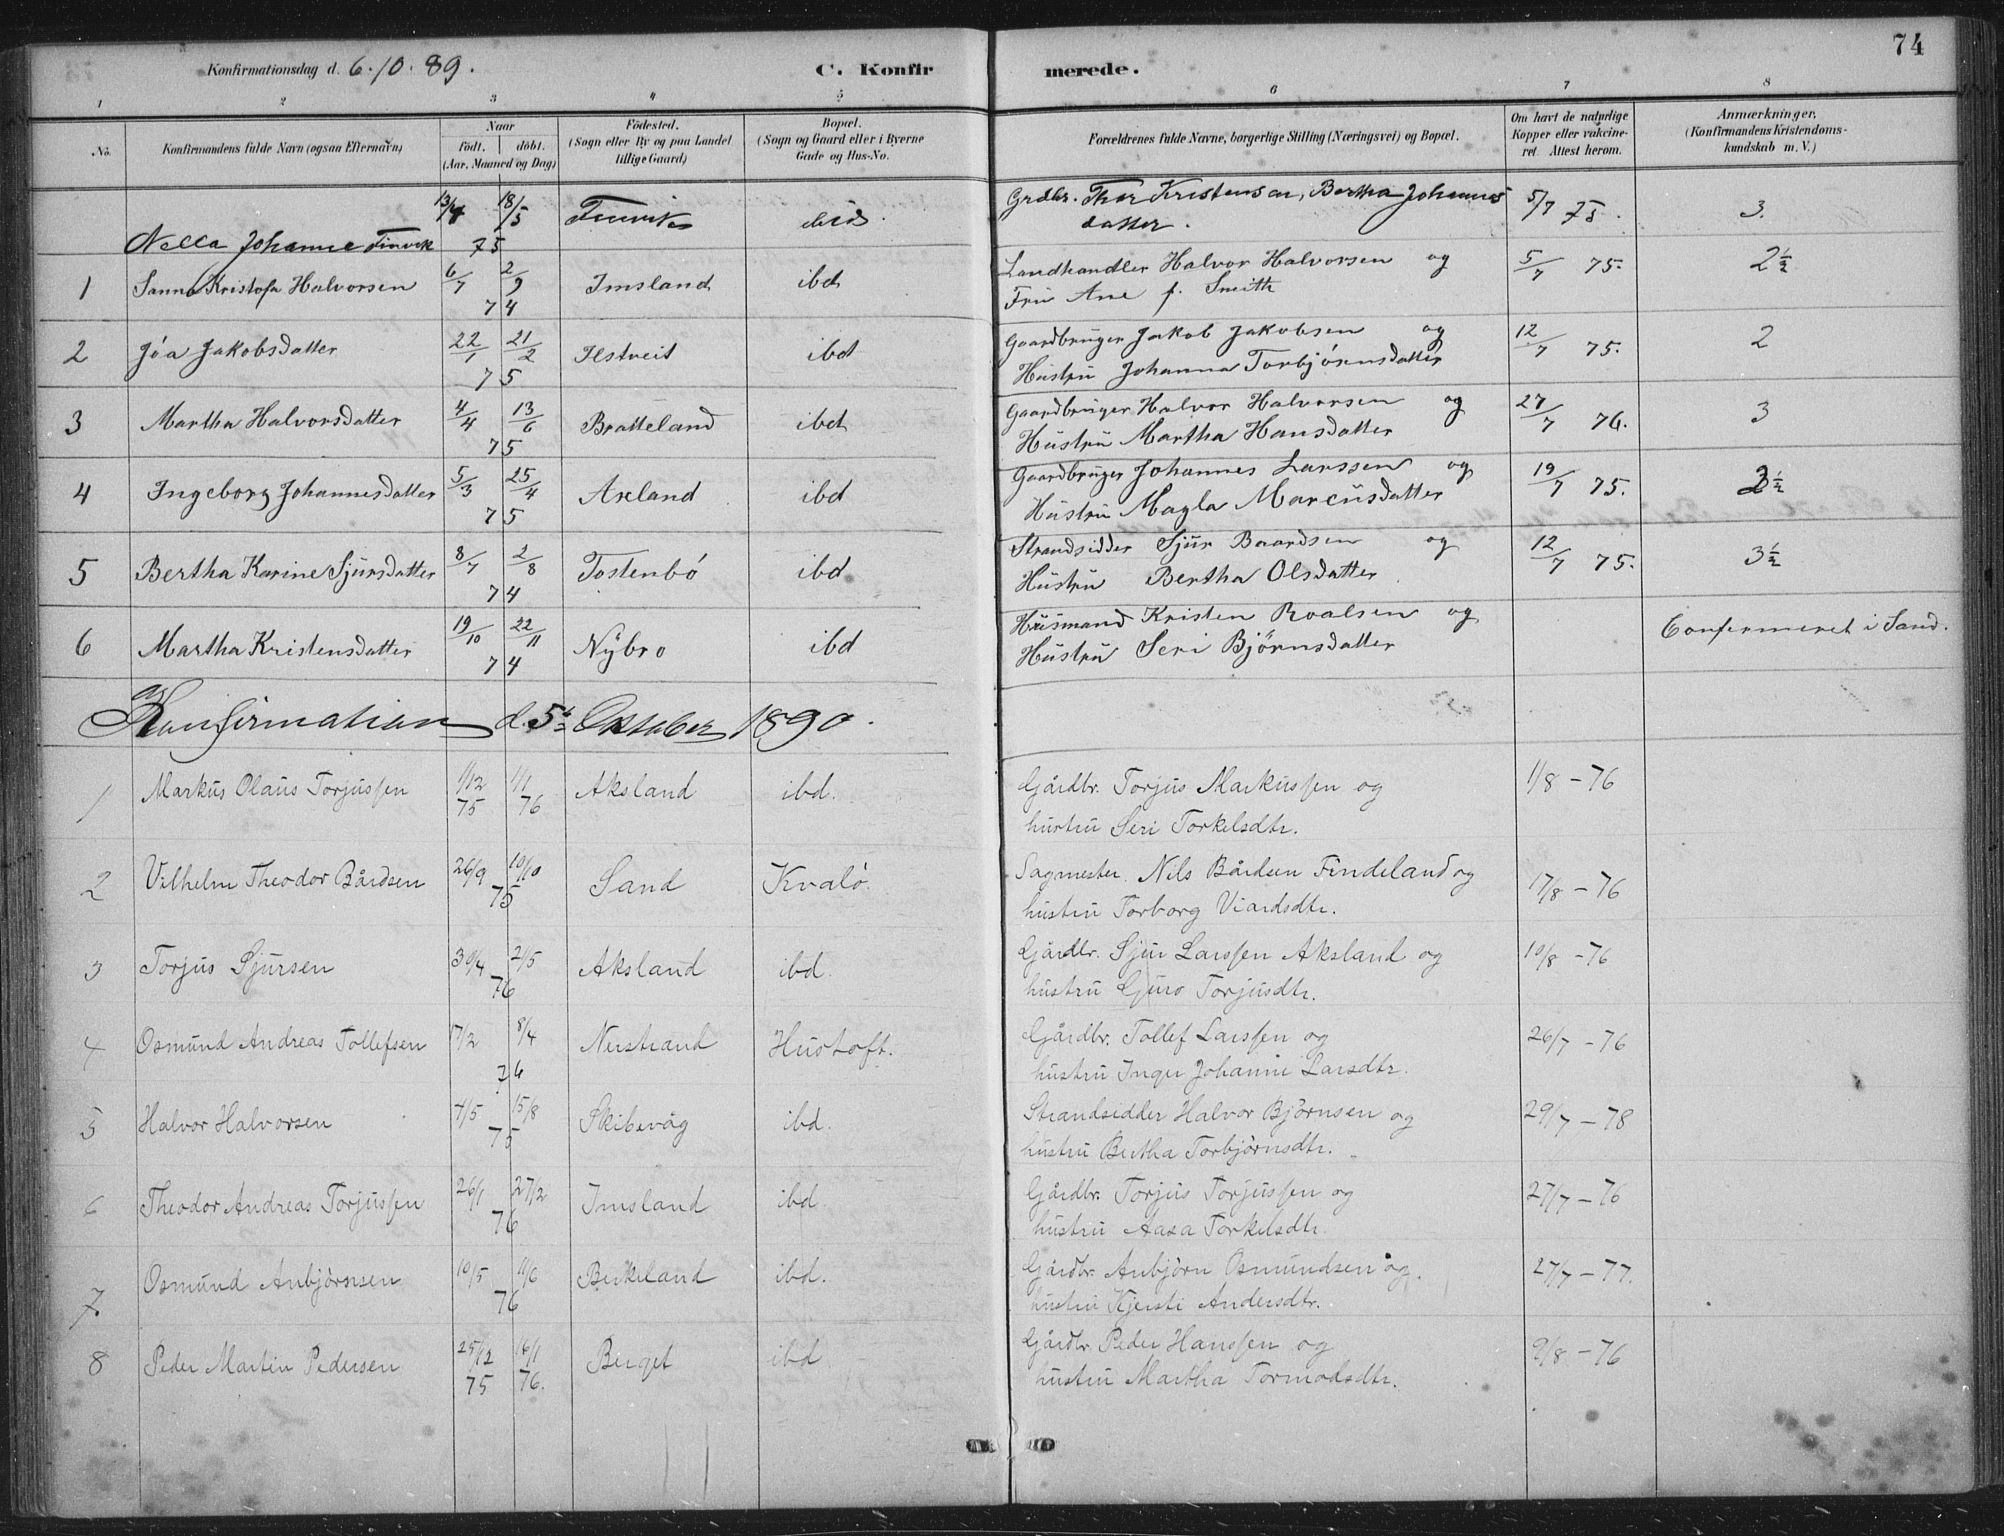 Konfirmationsdag d. 6.10.89. C. Konfirmerede. 74
1 2 3 4 5 6 7 8
No. Konfirmandens fulde Navn (ogsaa Efternavn) Naar født. døbt. (Aar, Maaned og Dag) Fødested. (Sogn eller By og paa Landet tillige Gaard) Bopæl. (Sogn og Gaard eller i Byerne Gade og Hus-No. Forældrenes fulde Navne, borgerlige Stilling (Næringsvei) og Bopæl. Om havt de naturlige Kopper eller vakcineret. Attest herom. Anmærkninger, (Konfirmandens Kristendomskundskab m. V.)
Nella Johanne Finvik 13/4 18/5 75 Finvik ibid. Grdbr. Thor Kristensen, Bertha Johannes 5/7 75. 3.
datter.
1 Sanna Kristofa Halvorsen 6/7 2/9 74 Imsland ibd Landhandler Halvor Halvorsen og 5/7 75. 2½
Fru Ane f. Smith
2 Jóa Jakobsdatter 22/1 21/2 75 Ilstveit ibd Gaardbruger Jakob Jakobsen og 12/7 75. 2
Hustru Johanna Torbjörnsdatter
3 Martha Halvorsdatter 4/4 13/6 75 Bratteland ibd Gaardbruger Halvor Halvorsen og 27/7 76. 3
Hustru Martha Hansdatter
4 Ingeborg Johannesdatter 5/3 25/4 75 Axland ibd Gaardbruger Johannes Larssen og 19/7 75.
Hustru Magla Marcusdatter
5 Bertha Karine Sjursdatter 8/7 2/8 74 Tostenbó ibd Strandsidder Sjur Baardsen og 12/7 75. 3½
Hustru Bertha Olsdatter
6 Martha Kristensdatter 19/10 22/11 74 Nÿbro ibd Husmand Kristen Roalsen og Confirmeret i Sand.
Hustru Seri Björnsdatter
Konfirmation d. 5t Oktober 1890.
1 Markus Olaus Torjussen 1/12 75 1/1 76 Aksland ibd. Gårdbr. Torjus Markussen og 1/8 - 76
hustru Seri Torkelsdtr.
2 Vilhelm Theodor Bårdsen 26/9 10/10 75 Sand Kvaló. Sagmester. Nils Bårdsen Findeland og 17/8 - 76
hustru Torborg Viardsdtr.
3 Torjus Sjursen 30/4 21/5 76 Aksland ibd. Gårdbr. Sjur Larssen Aksland og 10/8 - 76
hustru Guro Torjusdtr.
4 Osmund Andreas Tollefsen 17/2 8/4 76 Nerstrand Hustoft. Gårdbr. Tollef Larssen og 26/7 - 76
hustru Inger Johanne Larsdtr.
5 Halvor Halvorsen 4/5 15/8 75 Skibevåg ibd. Strandsidder Halvor Björnsen og 29/7 - 78
hustru Bertha Torbjörnsdtr.
6 Theodor Andreas Torjussen 26/1 27/2 76 Imsland ibd. Gårdbr. Torjus Torjussen og 27/7 - 76
hustru Aasa Torkelsdtr.
7 Osmund Anbjörnsen 10/5 11/6 76 Birkeland ibd. Gårdbr. Anbjörn Osmundsen og. 27/7 - 77.
hustru Kjersti Andersdtr.
8 Peder Martin Pedersen 25/12 75 16/1 76. Berget ibd Gårdbr. Peder Hanssen og 9/8 - 76
hustru Martha Tormodsdtr.